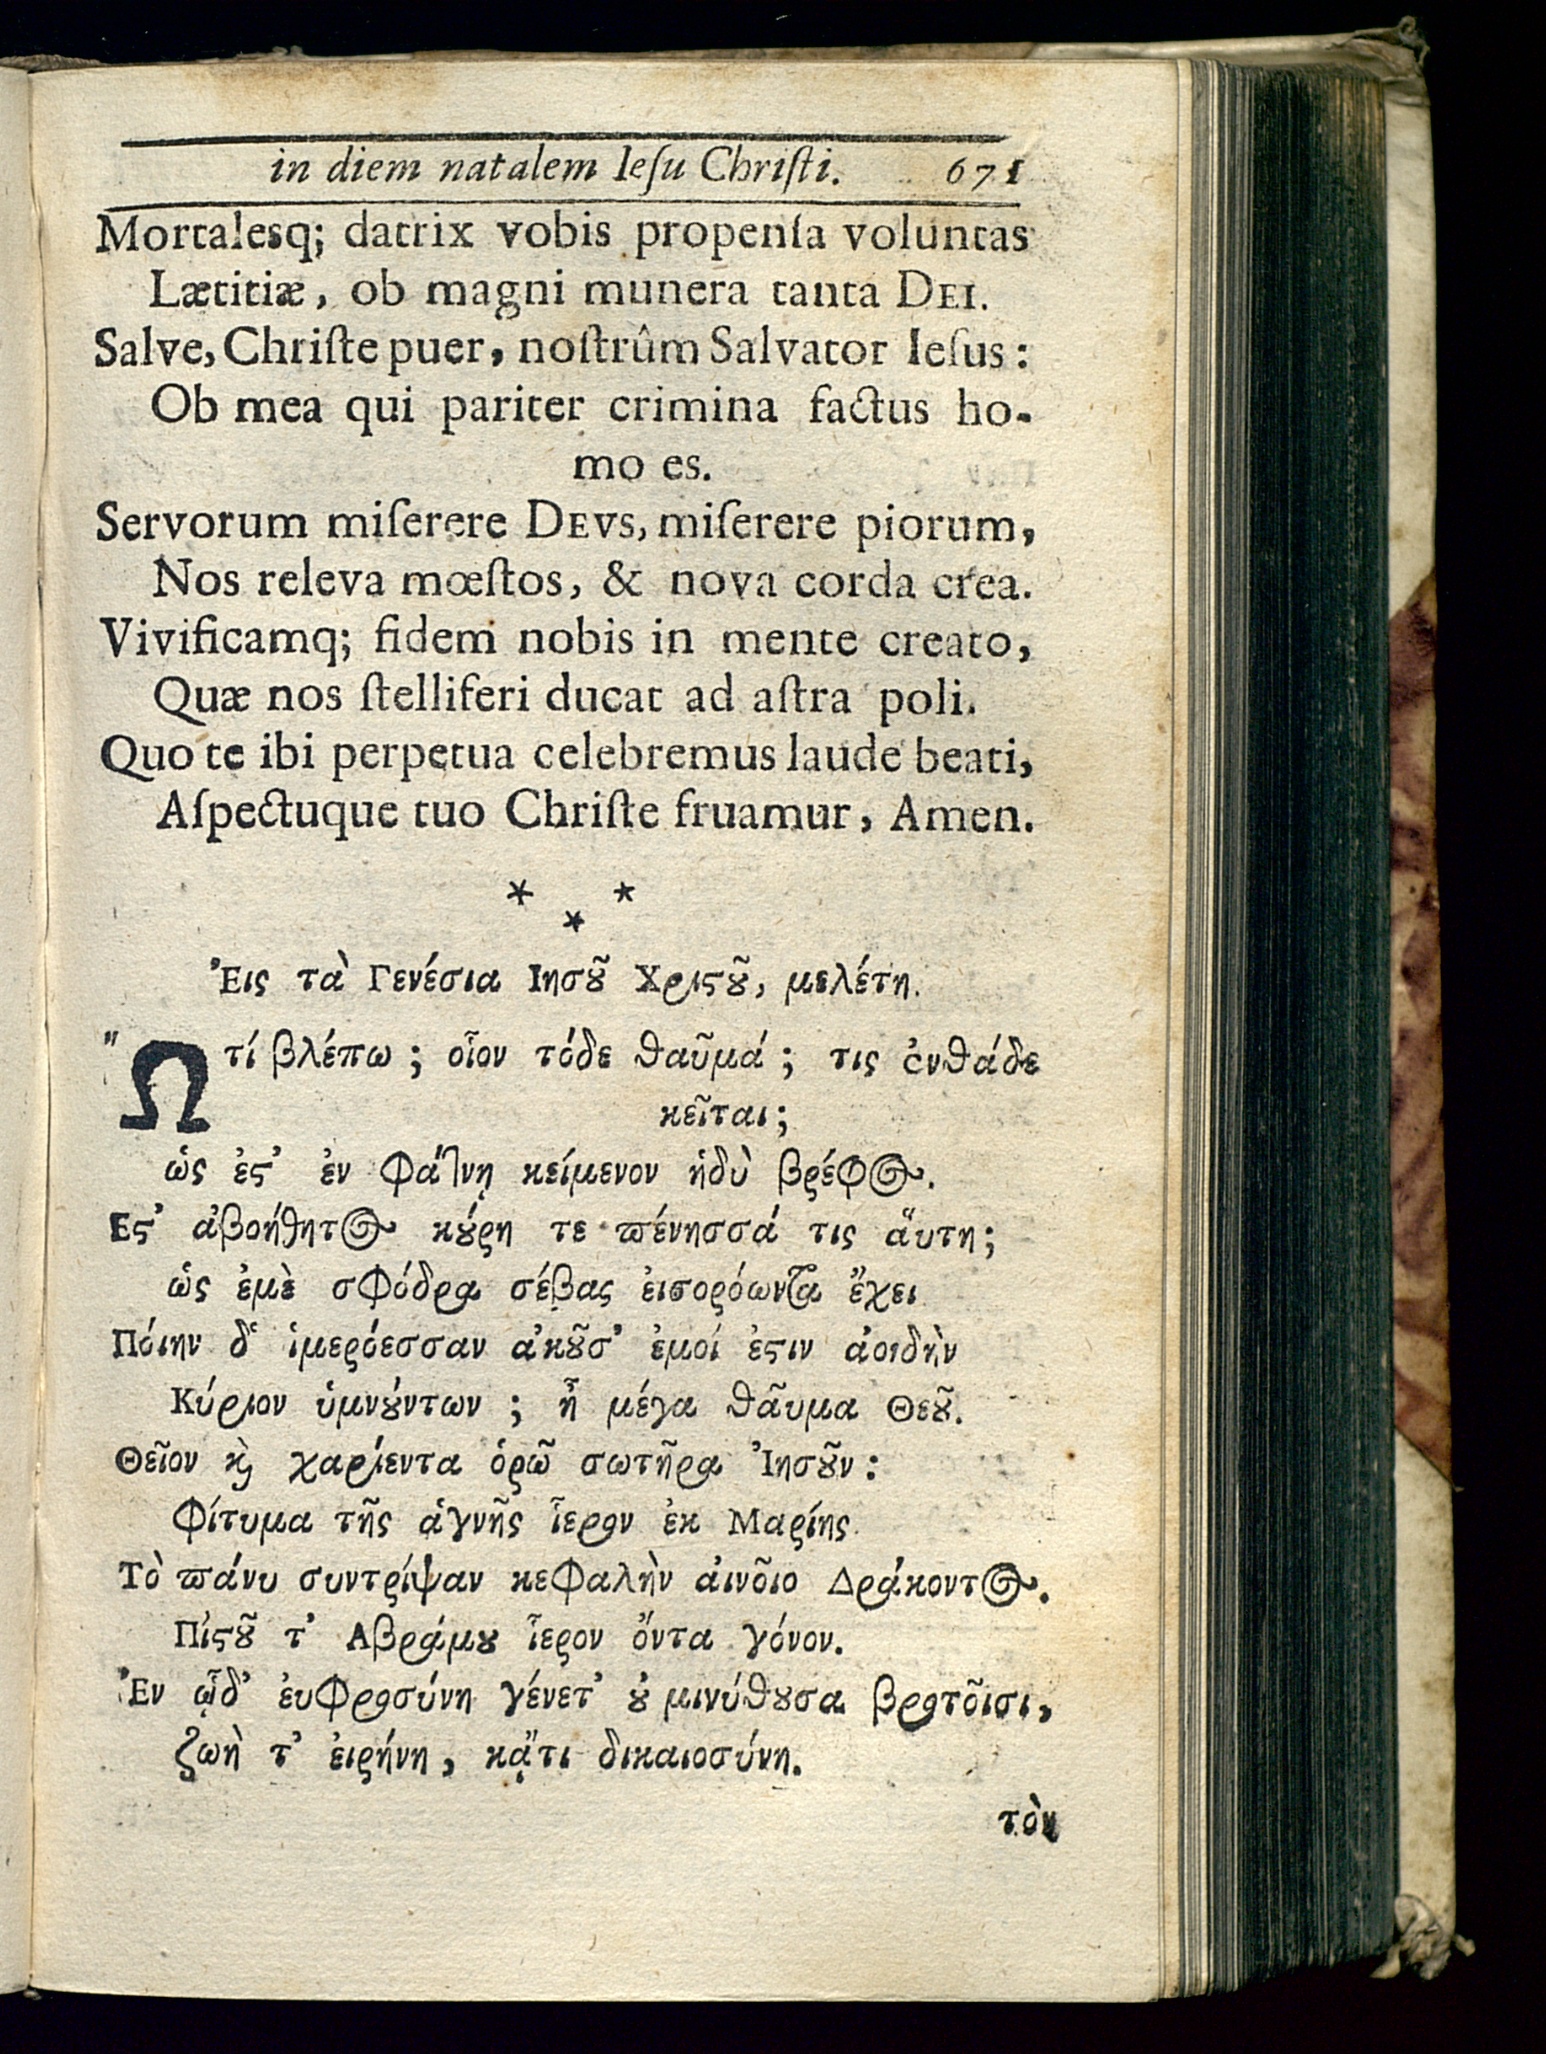 in diem natalem Ieſu Chriſti. 671
Mortalesq; datrix vobis propenſa voluntas
Lætitiæ, ob magni munera tanta DEI.
Salve, Chriſte puer, noſtrûm Salvator Ieſus:
Ob mea qui pariter crimina factus ho-
mo es.
Servorum miſerere DEVS, miſerere piorum,
Nos releva mœſtos, & nova corda crea.
Vivificamq; fidem nobis in mente creato,
Quæ nos ſtelliferi ducat ad aſtra poli.
Quo te ibi perpetua celebremus laude beati,
Aſpectuque tuo Chriſte fruamur, Amen.
* * *
Ἐις τὰ Γενέσια Ιησȣ͂ Χριϛȣ͂, μελέτη.
Ὢ τί βλέπω; οἷον τόδε θαῦμά; τις ἐνθάδε
κεῖται;
ὡς ἐϛ' ἐν φάτνῃ κείμενον ἡδὺ βρέφος.
Εϛ' ἀβοήθητος κȣ́ρη τε πένησσά τις ἅυτη;
ὡς ἐμὲ σφόδρα σέβας ἐισορόωντα ἔχει
Πόιην δ' ἱμερόεσσαν ἀκȣ͂σ' ἐμοί ἐϛιν ἀοιδὴν
Κύριον ὑμνȣ́ντων; ἦ μέγα θᾶυμα Θεȣ͂.
Θεῖον ϗ̀ χαρίεντα ὁρῶ σωτῆρα Ἰησȣ͂ν:
Φίτυμα τῆς ἁγνῆς ἷερον ἐκ Μαρίης
Τὸ πάνυ συντρίψαν κεφαλὴν ἀινο͂ιο Δράκοντος.
Πἰϛȣ͂ τ' Αβράμȣ ἷερον ὄντα γόνον.
Ἐν ᾧδ' ἐυφροσύνη γένετ' ȣ̓ μινύθȣσα βροτο͂ισι,
ζωὴ τ' ἐιρήνη, κᾄτι δικαιοσύνη.
τὸν